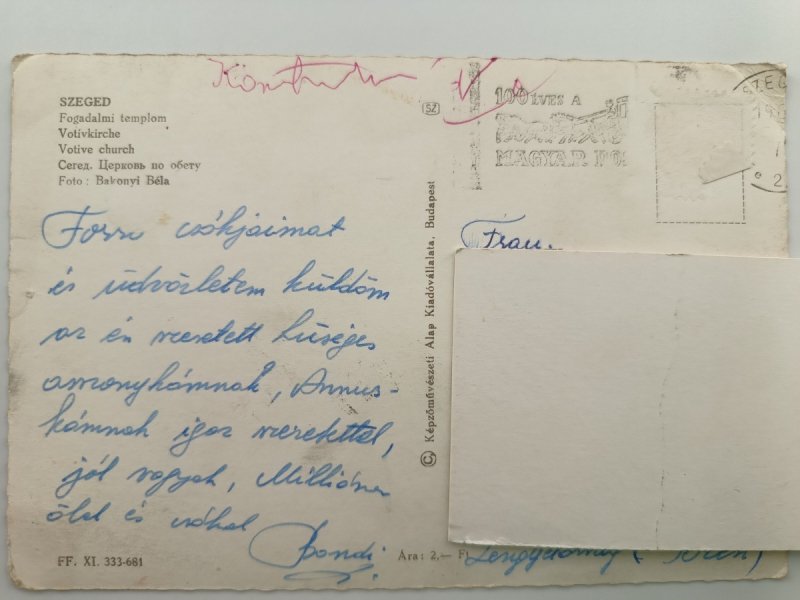 SZEGED
Fogadalmi templom
Votívkirche
Votive church
Серед. Церковь по обету
Foto : Bakonyi Béla
SZ
100 ÉVES A
MAGYAR PO
SZEG
Forró csókjaimat
és üdvözletem küldöm
az én szeretett hűséges
asszonykámnak, Annus-
kámnak igaz szeretettel,
jól vagyok, Milliószor
ölel és csókol
Bandi
FF. XI. 333-681
© Képzőművészeti Alap Kiadóvállalata, Budapest
Ara: 2.— F
Frau.